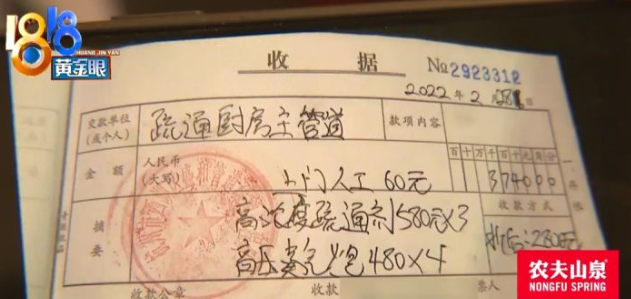 1818
HUANG JIN YAN
黄金眼
收 据
No 2923312
2022 年 2 月 28 日
交款单位
(或个人)
疏通厨房主管道
款项内容
百十万千百十元角分
金额
人民币
(大写)
上门人工 60元
374000
收款方式
摘要
高浓度疏通剂580元×3
折后:2280元
高压氮气炮480×4
收款公章
收款
票人
农夫山泉
NONGFU SPRING